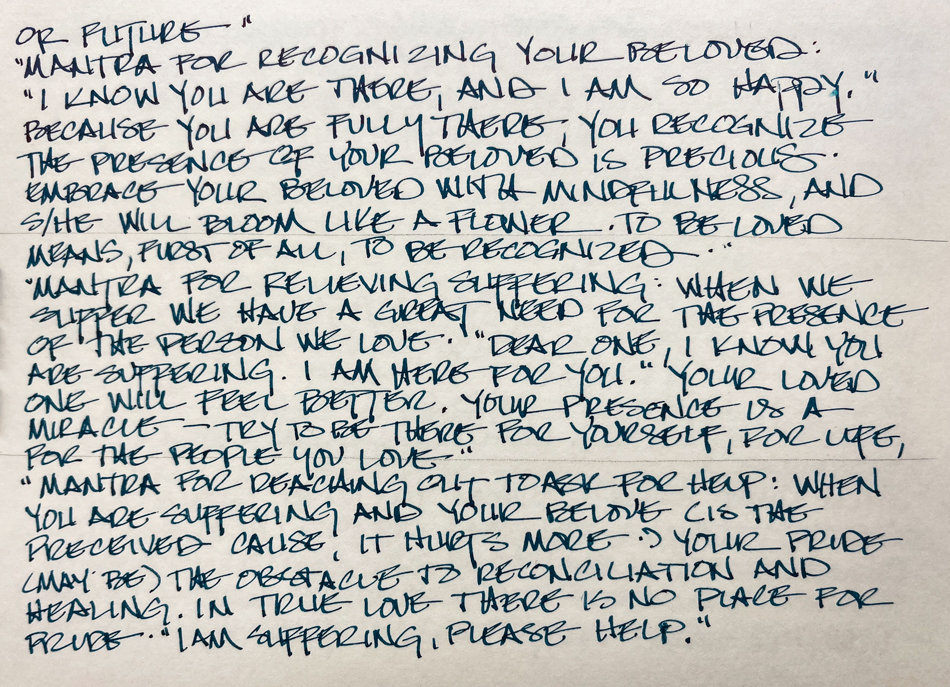 OR FUTURE"
"MANTRA FOR RECOGNIZING YOUR BELOVED:
"I KNOW YOU ARE THERE, AND I AM SO HAPPY."
BECAUSE YOU ARE FULLY THERE, YOU RECOGNIZE
THE PRESENCE OF YOUR BELOVED IS PRECIOUS.
EMBRACE YOUR BELOVED WITH MINDFULNESS, AND
S/HE WILL BLOOM LIKE A FLOWER. TO BE LOVED
MEANS, FIRST OF ALL, TO BE RECOGNIZED."
"MANTRA FOR RELIEVING SUFFERING: WHEN WE
SUFFER WE HAVE A GREAT NEED FOR THE PRESENCE
OF THE PERSON WE LOVE. "DEAR ONE, I KNOW YOU
ARE SUFFERING. I AM HERE FOR YOU." YOUR LOVED
ONE WILL FEEL BETTER. YOUR PRESENCE IS A
MIRACLE – TRY TO BE THERE FOR YOURSELF, FOR LIFE,
FOR THE PEOPLE YOU LOVE"
"MANTRA FOR REACHING OUT TO ASK FOR HELP: WHEN
YOU ARE SUFFERING AND YOUR BELOVE (IS THE
PRECEIVED CAUSE, IT HURTS MORE :) YOUR PRIDE
(MAY BE) THE OBSTACLE TO RECONCILIATION AND
HEALING. IN TRUE LOVE THERE IS NO PLACE FOR
PRIDE. "I AM SUFFERING, PLEASE HELP."